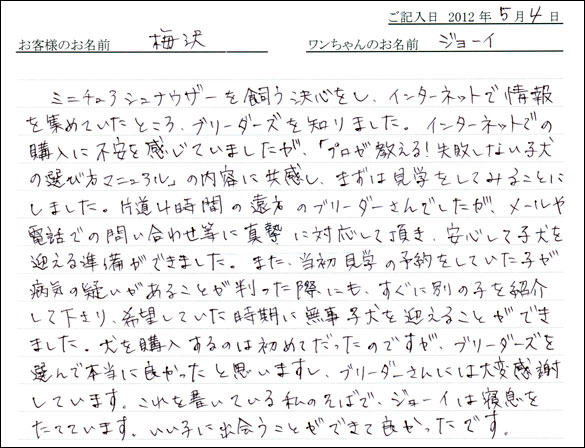 ご記入日 2012年5月4日
お客様のお名前 梅沢 ワンちゃんのお名前 ジョーイ
ミニチュアシュナウザーを飼う決心をし、インターネットで情報
を集めていたところ、ブリーダーズを知りました。インターネットでの
購入に不安を感じていましたが、「プロが教える!失敗しない子犬
の選び方マニュアル」の内容に共感し、まずは見学をしてみることに
しました。片道4時間の遠方のブリーダーさんでしたが、メールや
電話での問い合わせ等に真摯に対応して頂き、安心して子犬を
迎える準備ができました。また、当初見学の予約をしていた子が
病気の疑いがあることが判った際にも、すぐに別の子を紹介
して下さり、希望していた時期に無事子犬を迎えることができ
ました。犬を購入するのは初めてだったのですが、ブリーダーズを
選んで本当に良かったと思いますし、ブリーダーさんには大変感謝
しています。これを書いている私のそばで、ジョーイは寝息を
たてています。いい子に出会うことができて良かったです。